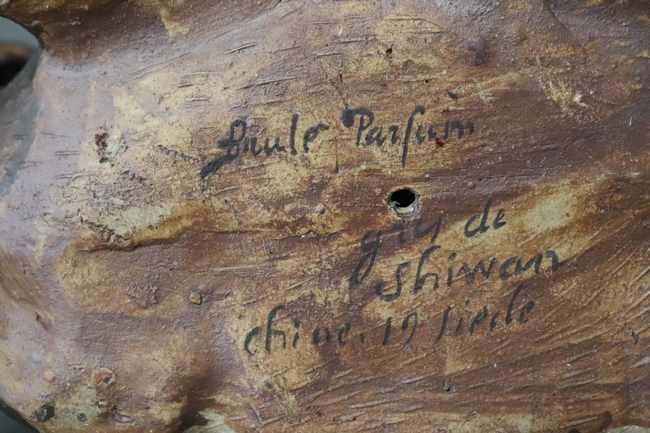 Brule Parfum
grès de
Shiwan
chine. 19 siècle